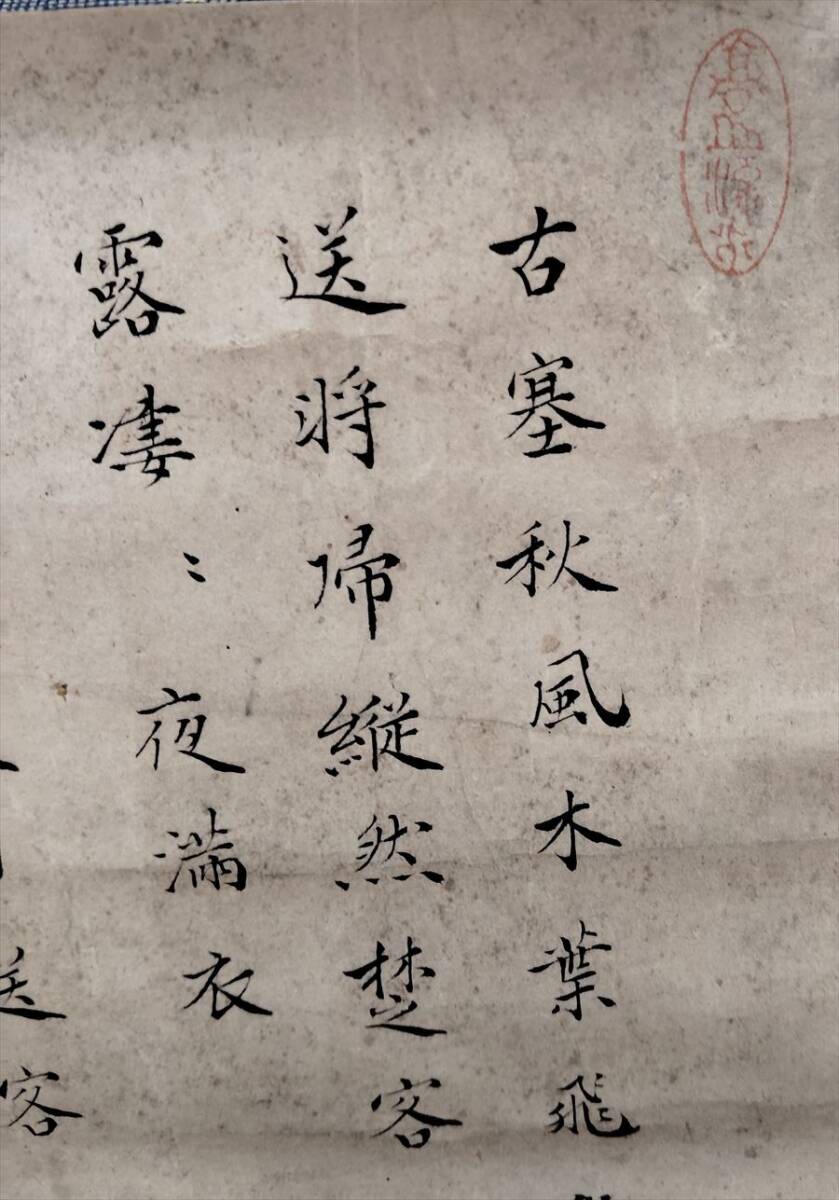 古塞秋風木葉飛
送將帰縱然楚客
露凄〻夜滿衣
送客